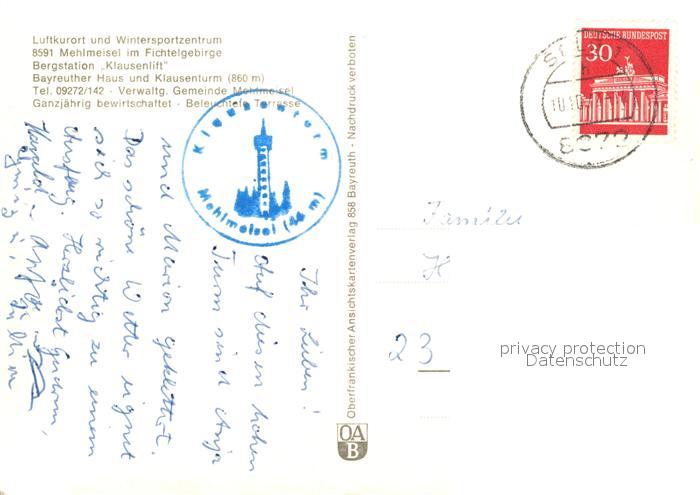 Luftkurort und Wintersportzentrum
8591 Mehlmeisel im Fichtelgebirge
Bergstation „Klausenlift"
Bayreuther Haus und Klausenturm (860 m)
Tel. 09272/142 · Verwaltg. Gemeinde Mehlmeisel
Ganzjährig bewirtschaftet · Beleuchtete Terrasse
Klausenturm
Mehlmeisel (44 m)
Ihr Lieben!
Auf diesen hohen
Turm sind Anja
und Marion geklettert.
Das schöne Wetter eignet
sich so richtig zu einem
Ausflug. Herzlichst Gudrun,
Harald
Oberfränkischer Ansichtskartenverlag 858 Bayreuth - Nachdruck verboten
OAB
DEUTSCHE BUNDESPOST
30
Familie
H
23
privacy protection
Datenschutz